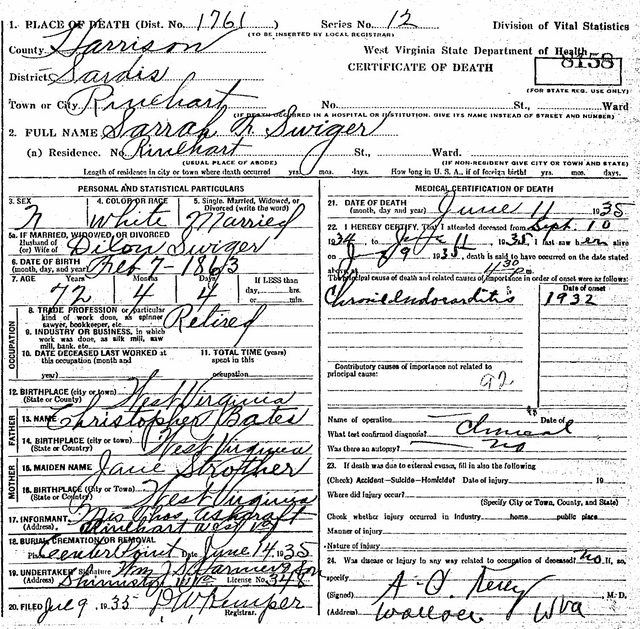 1. PLACE OF DEATH (Dist. No. 1761 Series No. 12 Division of Vital Statistics
(TO BE INSERTED BY LOCAL REGISTRAR)
County Harrison West Virginia State Department of Health
CERTIFICATE OF DEATH 8158
(FOR STATE REG. USE ONLY)
District Sardis
Town or City Rinehart No. St., Ward
(IF DEATH OCCURRED IN A HOSPITAL OR INSTITUTION, GIVE ITS NAME INSTEAD OF STREET AND NUMBER)
2. FULL NAME Sarrah Swiger
(a) Residence. No Rinehart St., Ward.
(USUAL PLACE OF ABODE) (IF NON-RESIDENT GIVE CITY OR TOWN AND STATE)
Length of residence in city or town where death occurred yrs. mos. days. How long in U. S. A., if of foreign birth? yrs. mos. days.
PERSONAL AND STATISTICAL PARTICULARS
3. SEX 4. COLOR OR RACE 5. Single, Married, Widowed, or Divorced (write the word)
White Married
5a. IF MARRIED, WIDOWED, OR DIVORCED
Husband of
(or) Wife of Dilon Swiger
6. DATE OF BIRTH
(month, day, and year) Feb 7 - 1863
7. AGE Months Days If LESS than
72 4 4 day, hrs.
or min.
8. TRADE, PROFESSION or particular
kind of work done, as spinner
sawyer, bookkeeper, etc. Retired
9. INDUSTRY OR BUSINESS, in which
work was done, as silk mill, saw
mill, bank, etc.
OCCUPATION
10. DATE DECEASED LAST WORKED at
this occupation (month and
year)
11. TOTAL TIME (years)
spent in this
occupation
12. BIRTHPLACE (city or town)
(State or County) West Virginia
FATHER
13. NAME Christopher Bates
14. BIRTHPLACE (city or town)
(State or Country) West Virginia
MOTHER
15. MAIDEN NAME Jane Strother
16. BIRTHPLACE (City or Town)
(State or Country) West Virginia
17. INFORMANT Mrs Thos. Ashcraft
(Address) Rinehart West Va
18. BURIAL, CREMATION OR REMOVAL
Place Center Point Date June 14, 1935
19. UNDERTAKER Signature Wm J S Harmer & Son
(Address) Shinnston W Va License No. 348
20. FILED Jul 9, 1935 P W Kemper
Registrar.
MEDICAL CERTIFICATION OF DEATH
21. DATE OF DEATH
(month, day and year) June 11 1935
22. I HEREBY CERTIFY, That I attended deceased from Sept. 10
1934, to June 11, 1935. I last saw her alive
on 1935, death is said to have occurred on the date stated
above, at 4 30
The principal cause of death and related causes of importance in order of onset were as follows:
Date of onset
Chronic Endocarditis 1932
Contributory causes of importance not related to
principal cause:
92
Name of operation Date of
What test confirmed diagnosis? Clinical
Was there an autopsy? no
23. If death was due to external causes, fill in also the following
(Check) Accident—Suicide—Homicide? Date of injury 19
Where did injury occur?
(Specify City or Town, County, and State)
Check whether injury occurred in Industry home public place
Manner of injury
Nature of injury
24. Was disease or injury in any way related to occupation of deceased? no If, so,
specify
(Signed) M. D.
(Address) Wallace W Va